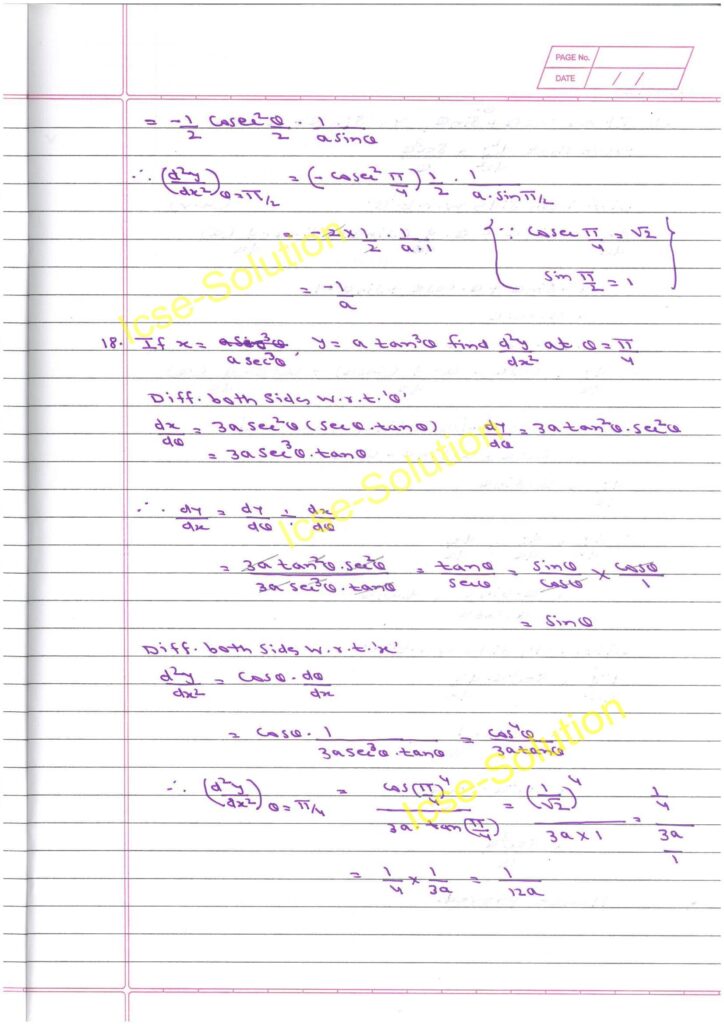 PAGE No.
DATE / /
= -1/2 cosec²θ/2 · 1/(a sinθ)
∴ (d²y/dx²)θ=π/2 = (-cosec² π/4) 1/2 · 1/(a·sin π/2)
= -2 × 1/2 · 1/(a·1) {∵ cosec π/4 = √2
sin π/2 = 1}
= -1/a
18. If x = a sec³θ, y = a tan³θ find d²y/dx² at θ = π/4
Diff. both sides w.r.t. 'θ'
dx/dθ = 3a sec²θ (secθ·tanθ) dy/dθ = 3a tan²θ·sec²θ
= 3a sec³θ·tanθ
∴ dy/dx = dy/dθ ÷ dx/dθ
= (3a tan²θ·sec²θ)/(3a sec³θ·tanθ) = tanθ/secθ = sinθ/cosθ × cosθ/1
= sinθ
Diff. both sides w.r.t. 'x'
d²y/dx² = cosθ · dθ/dx
= cosθ · 1/(3a sec³θ·tanθ) = cos⁴θ/(3a tanθ)
∴ (d²y/dx²)θ=π/4 = cos(π/4)⁴/(3a·tan(π/4)) = (1/√2)⁴/(3a×1) = (1/4)/(3a/1)
= 1/4 × 1/3a = 1/12a
Icse-Solution
Icse-Solution
Icse-Solution